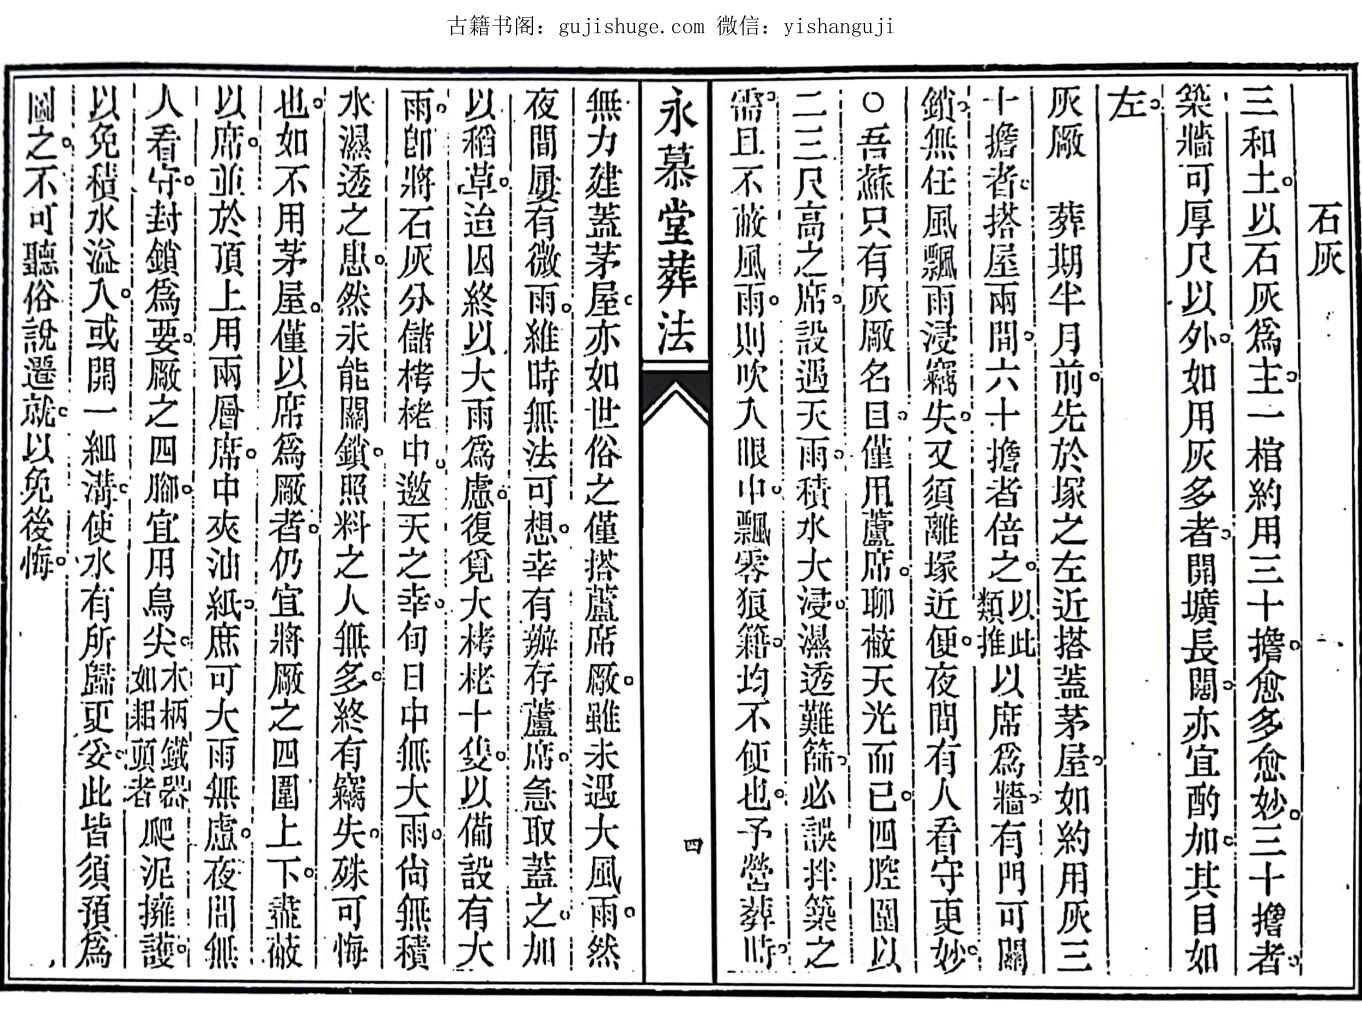 古籍书阁：gujishuge.com 微信：yishanguji
石灰
三和土。以石灰爲主。一棺約用三十擔。愈多愈妙。三十擔者。
築牆可厚尺以外。如用灰多者。開壙長闊。亦宜酌加。其目如
左。
灰厰　葬期半月前。先於塚之左近搭蓋茅屋。如約用灰三
十擔者。搭屋兩間。六十擔者倍之。以此類推以席爲牆。有門可關
鎖。無任風飄雨浸竊失。又須離塚近便。夜間有人看守更妙。
○吾蘇只有灰厰名目。僅用蘆席。聊蔽天光而已。四腔圍以
二三尺高之席。設遇天雨。積水大浸。濕透難篩。必誤拌築之
需。且不蔽風雨。則吹入眼中。飄零狼籍。均不便也。予營葬時。
永慕堂葬法
四
無力建蓋茅屋。亦如世俗之僅搭蘆席厰。雖未遇大風雨。然
夜間屢有微雨。維時無法可想。幸有辦存蘆席。急取蓋之。加
以稻草。迨因終以大雨爲慮。復覓大栲栳十隻。以備設有大
雨。卽將石灰分儲栲栳中。邀天之幸。旬日中無大雨。尙無積
水濕透之患。然未能關鎖。照料之人無多。終有竊失。殊可悔
也。如不用茅屋。僅以席爲厰者。仍宜將厰之四圍上下。盡蔽
以席。並於頂上用兩層席。中夾油紙。庶可大雨無慮。夜間無
人看守。封鎖爲要。厰之四腳。宜用烏尖。木柄鐵器如耜頭者爬泥擁護。
以免積水溢入。或開一細溝。使水有所歸更妥。此皆須預爲
圖之。不可聽俗說遷就。以免後悔。